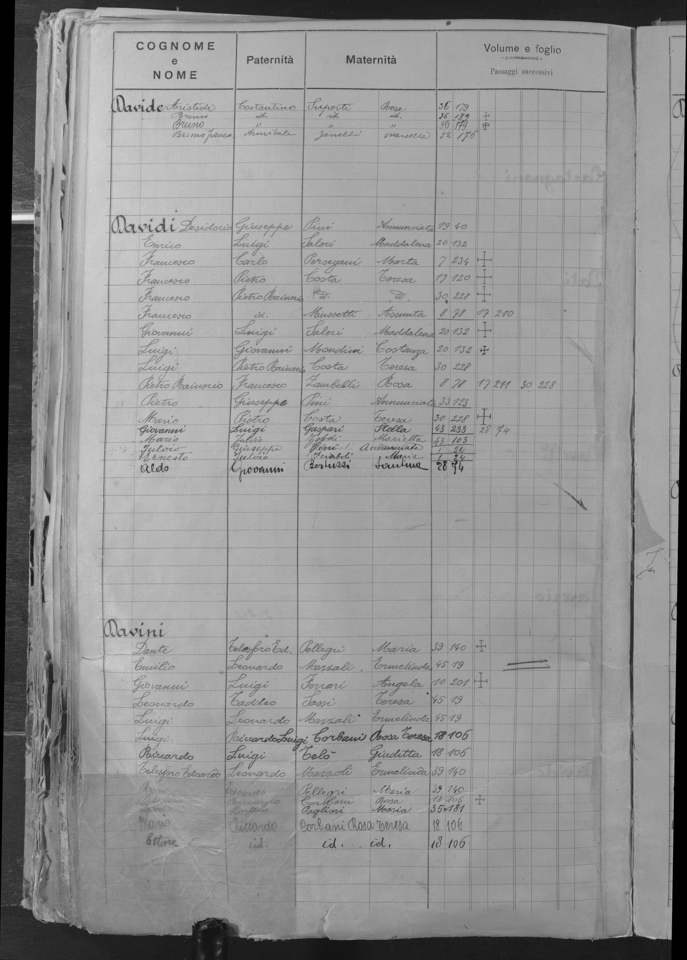 COGNOME e NOME Paternità Maternità Volume e foglio
Passaggi successivi
Davide Aristide Costantino Suporti Rosa 36 179
Bruno id. id. id. 36 189
Bruno " " "
Annibale 176
Davidi Desiderio Giuseppe Pini Annunciata 19 40
Enrico Luigi Salori Maddalena 20 132
Francesco Carlo Persegani Marta 7 234
Francesco Pietro Costa Teresa 17 120
Francesco Pietro Bainorio id. id. 30 228
Francesco id. Mussetti Assunta 8 78 17 210
Giovanni Luigi Salori Maddalena 20 132
Luigi Giovanni Mondini Costanza 20 132
Luigi Pietro Bainorio Costa Teresa 30 228
Pietro Bainorio Francesco Zambelli Rosa 8 78 17 211 30 228
Pietro Giuseppe Pini Annunciata 33 123
Mario Pietro Costa Teresa 30 228
Giovanni Luigi Gaspari Stella 43 233 28 74
Mario Marietta 43 103
Fulvio Giuseppe Pini Annunciata 1 24
Ernesto Fulvio Maria 1 24
Aldo Giovanni Bertuzzi Santina 28 74
Davini
Dante Telesforo Ed. Pellegri Maria 39 140
Emilio Leonardo Mazzoli Ermelinda 45 19
Giovanni Luigi Ferrari Angela 10 201
Leonardo Taddeo Sassi Teresa 45 19
Luigi Leonardo Mazzoli Ermelinda 45 19
Luigi Riccardo Luigi Corbani Rosa Teresa 18 106
Riccardo Luigi Telò Giuditta 18 106
Telesforo Edoardo Leonardo Mazzoli Ermelinda 39 140
Pellegri Maria 39 140
Riccardo Corbani Rosa 18 106
Pagliari Maria 35 181
Mario Riccardo Corbani Rosa Teresa 18 106
Ettore id. id. id. 18 106